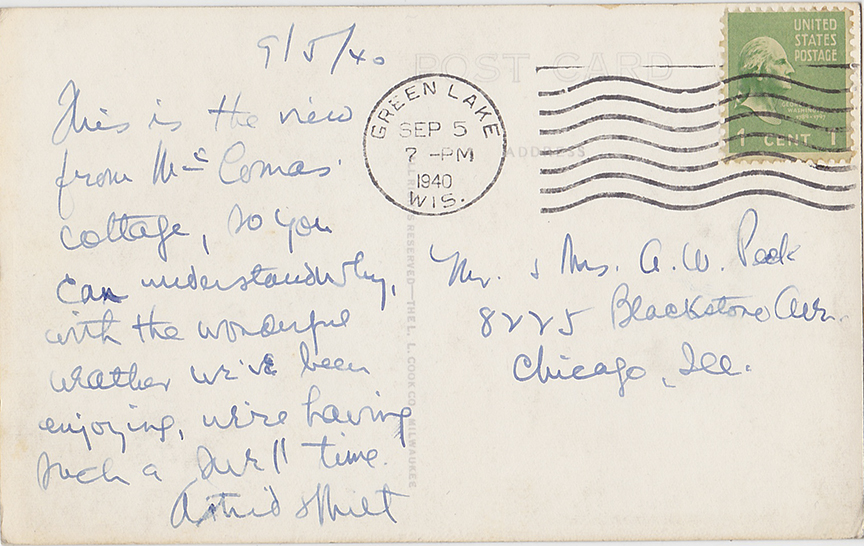 9/5/40
This is the view
from McComas'
cottage, so you
can understand why,
with the wonderful
weather we've been
enjoying, we're having
such a swell time.
Astrid & Milt
POST CARD
ADDRESS
GREEN LAKE
SEP 5
7 -PM
1940
WIS.
UNITED
STATES
POSTAGE
1 CENT 1
RESERVED—THE L. L. COOK CO. MILWAUKEE
Mr. & Mrs. A. W. Peck
8225 Blackstone Ave.
Chicago, Ill.